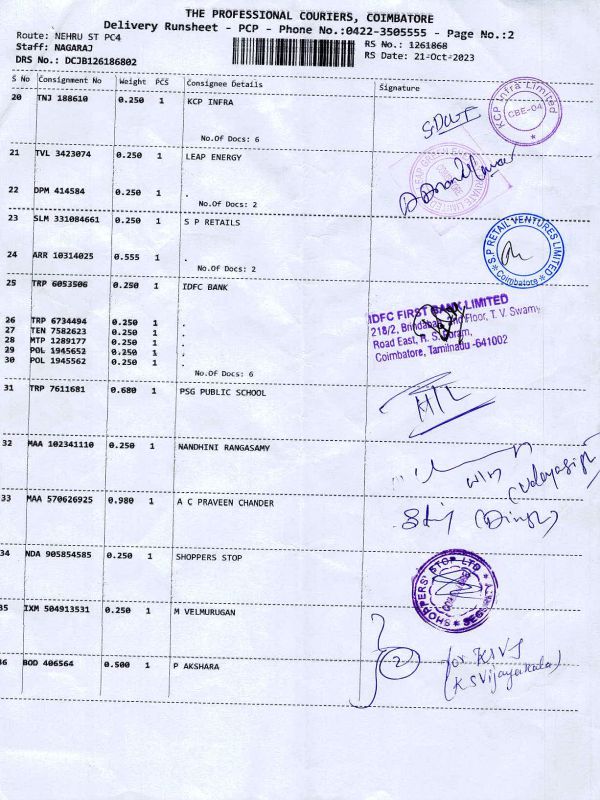 THE PROFESSIONAL COURIERS, COIMBATORE
Delivery Runsheet - PCP - Phone No.:0422-3505555 - Page No.:2
Route: NEHRU ST PC4 RS No.: 1261868
Staff: NAGARAJ RS Date: 21-Oct-2023
DRS No.: DCJB126186802
S No Consignment No Weight PCS Consignee Details Signature
20 TNJ 188610 0.250 1 KCP INFRA
KCP Infra Limited
CBE-04
No.Of Docs: 6
21 TVL 3423074 0.250 1 LEAP ENERGY
22 DPM 414584 0.250 1 .
No.Of Docs: 2
23 SLM 331084661 0.250 1 S P RETAILS
S.P RETAIL VENTURES LIMITED
Coimbatore
24 ARR 10314025 0.555 1 .
No.Of Docs: 2
25 TRP 6053506 0.250 1 IDFC BANK
IDFC FIRST BANK LIMITED
218/2, Floor, T. V. Swamy
Road East, R. S. Puram,
Coimbatore, Tamilnadu -641002
26 TRP 6734494 0.250 1 .
27 TEN 7582623 0.250 1 .
28 MTP 1289177 0.250 1 .
29 POL 1945652 0.250 1 .
30 POL 1945562 0.250 1 .
No.Of Docs: 6
31 TRP 7611681 0.680 1 PSG PUBLIC SCHOOL
32 MAA 102341110 0.250 1 NANDHINI RANGASAMY
33 MAA 570626925 0.980 1 A C PRAVEEN CHANDER
34 NDA 905854585 0.250 1 SHOPPERS STOP
SHOPPERS' STOP LTD
35 IXM 504913531 0.250 1 M VELMURUGAN
36 BOD 406564 0.500 1 P AKSHARA
2
for KSVJ
(KSVijayakala)